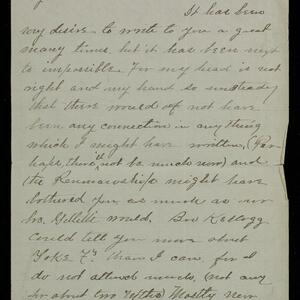 It has been
my desire to write to you a great
many times, but it has been next
to impossible. For my head is not
right and my hand so unsteady
that there would of not have
been any connection in any thing
which I might have written, (Per-
haps, there not be much now) and
the Penmanship might have
bothered you as much as our
Gillette would. Bro Kellogg
could tell you more about
than I can, for I
do not attend much, (not any
for about two Mostly new